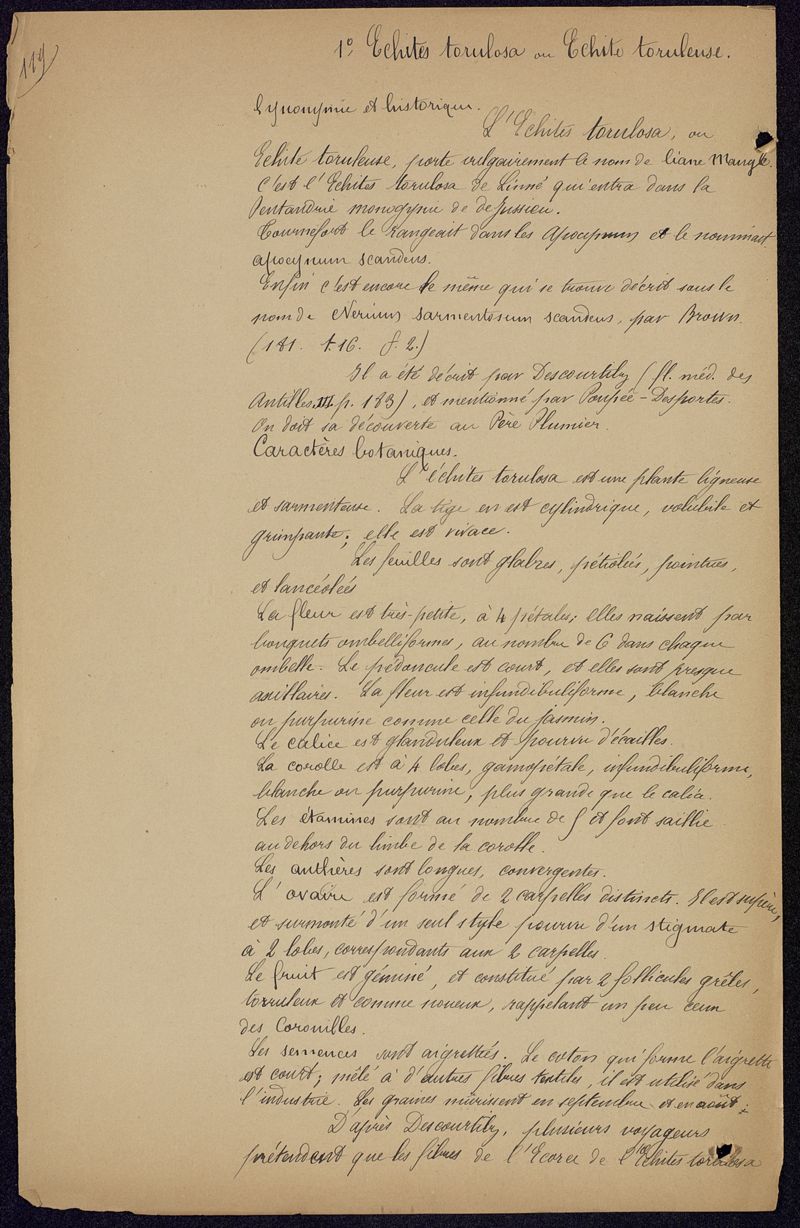 119
1º Echites torulosa ou Echite toruleuse.
Synonymie et historique.
L'Echites torulosa, ou
Echite toruleuse, porte vulgairement le nom de liane Mangle.
C'est l'Echites torulosa de Linné qui entra dans la
Pentandrie monogynie de de Jussieu.
Tournefort le rangeait dans les Apocynum et le nommait
apocynum scandens.
Enfin c'est encore le même qui se trouve décrit sous le
nom de Nerium sarmentosum scandens, par Brown.
(181. t.16. f. 2.)
Il a été décrit par Descourtilz (fl. méd. des
Antilles. III. p. 183), et mentionné par Poupée-Desportes.
On doit sa découverte au Père Plumier.
Caractères botaniques.
L'échites torulosa est une plante ligneuse
et sarmenteuse. La tige en est cylindrique, volubile et
grimpante; elle est vivace.
Les feuilles sont glabres, pétiolées, pointues,
et lancéolées
La fleur est très-petite, à 4 pétales; elles naissent par
bouquets ombelliformes, au nombre de 6 dans chaque
ombelle. Le pédoncule est court, et elles sont presque
axillaires. La fleur est infundibuliforme, blanche
ou purpurine comme celle du jasmin.
Le calice est glanduleux et pourvu d'écailles.
La corolle est à 4 lobes, gamopétale, infundibuliforme,
blanche ou purpurine, plus grande que le calice.
Les étamines sont au nombre de 5 et font saillie
au dehors du limbe de la corolle.
Les anthères sont longues, convergentes.
L'ovaire est formé de 2 carpelles distincts. Il est supère,
et surmonté d'un seul style pourvu d'un stigmate
à 2 lobes, correspondants aux 2 carpelles.
Le fruit est géminé, et constitué par 2 follicules grêles,
torruleux et comme noueux, rappelant un peu ceux
des Coronilles.
Les semences sont aigrettées. Le coton qui forme l'aigrette
est court; mêlé à d'autres fibres textiles, il est utilisé dans
l'industrie. Les graines mûrissent en septembre et en août.
D'après Descourtilz, plusieurs voyageurs
prétendent que les fibres de l'Ecorce de l'Echites torulosa